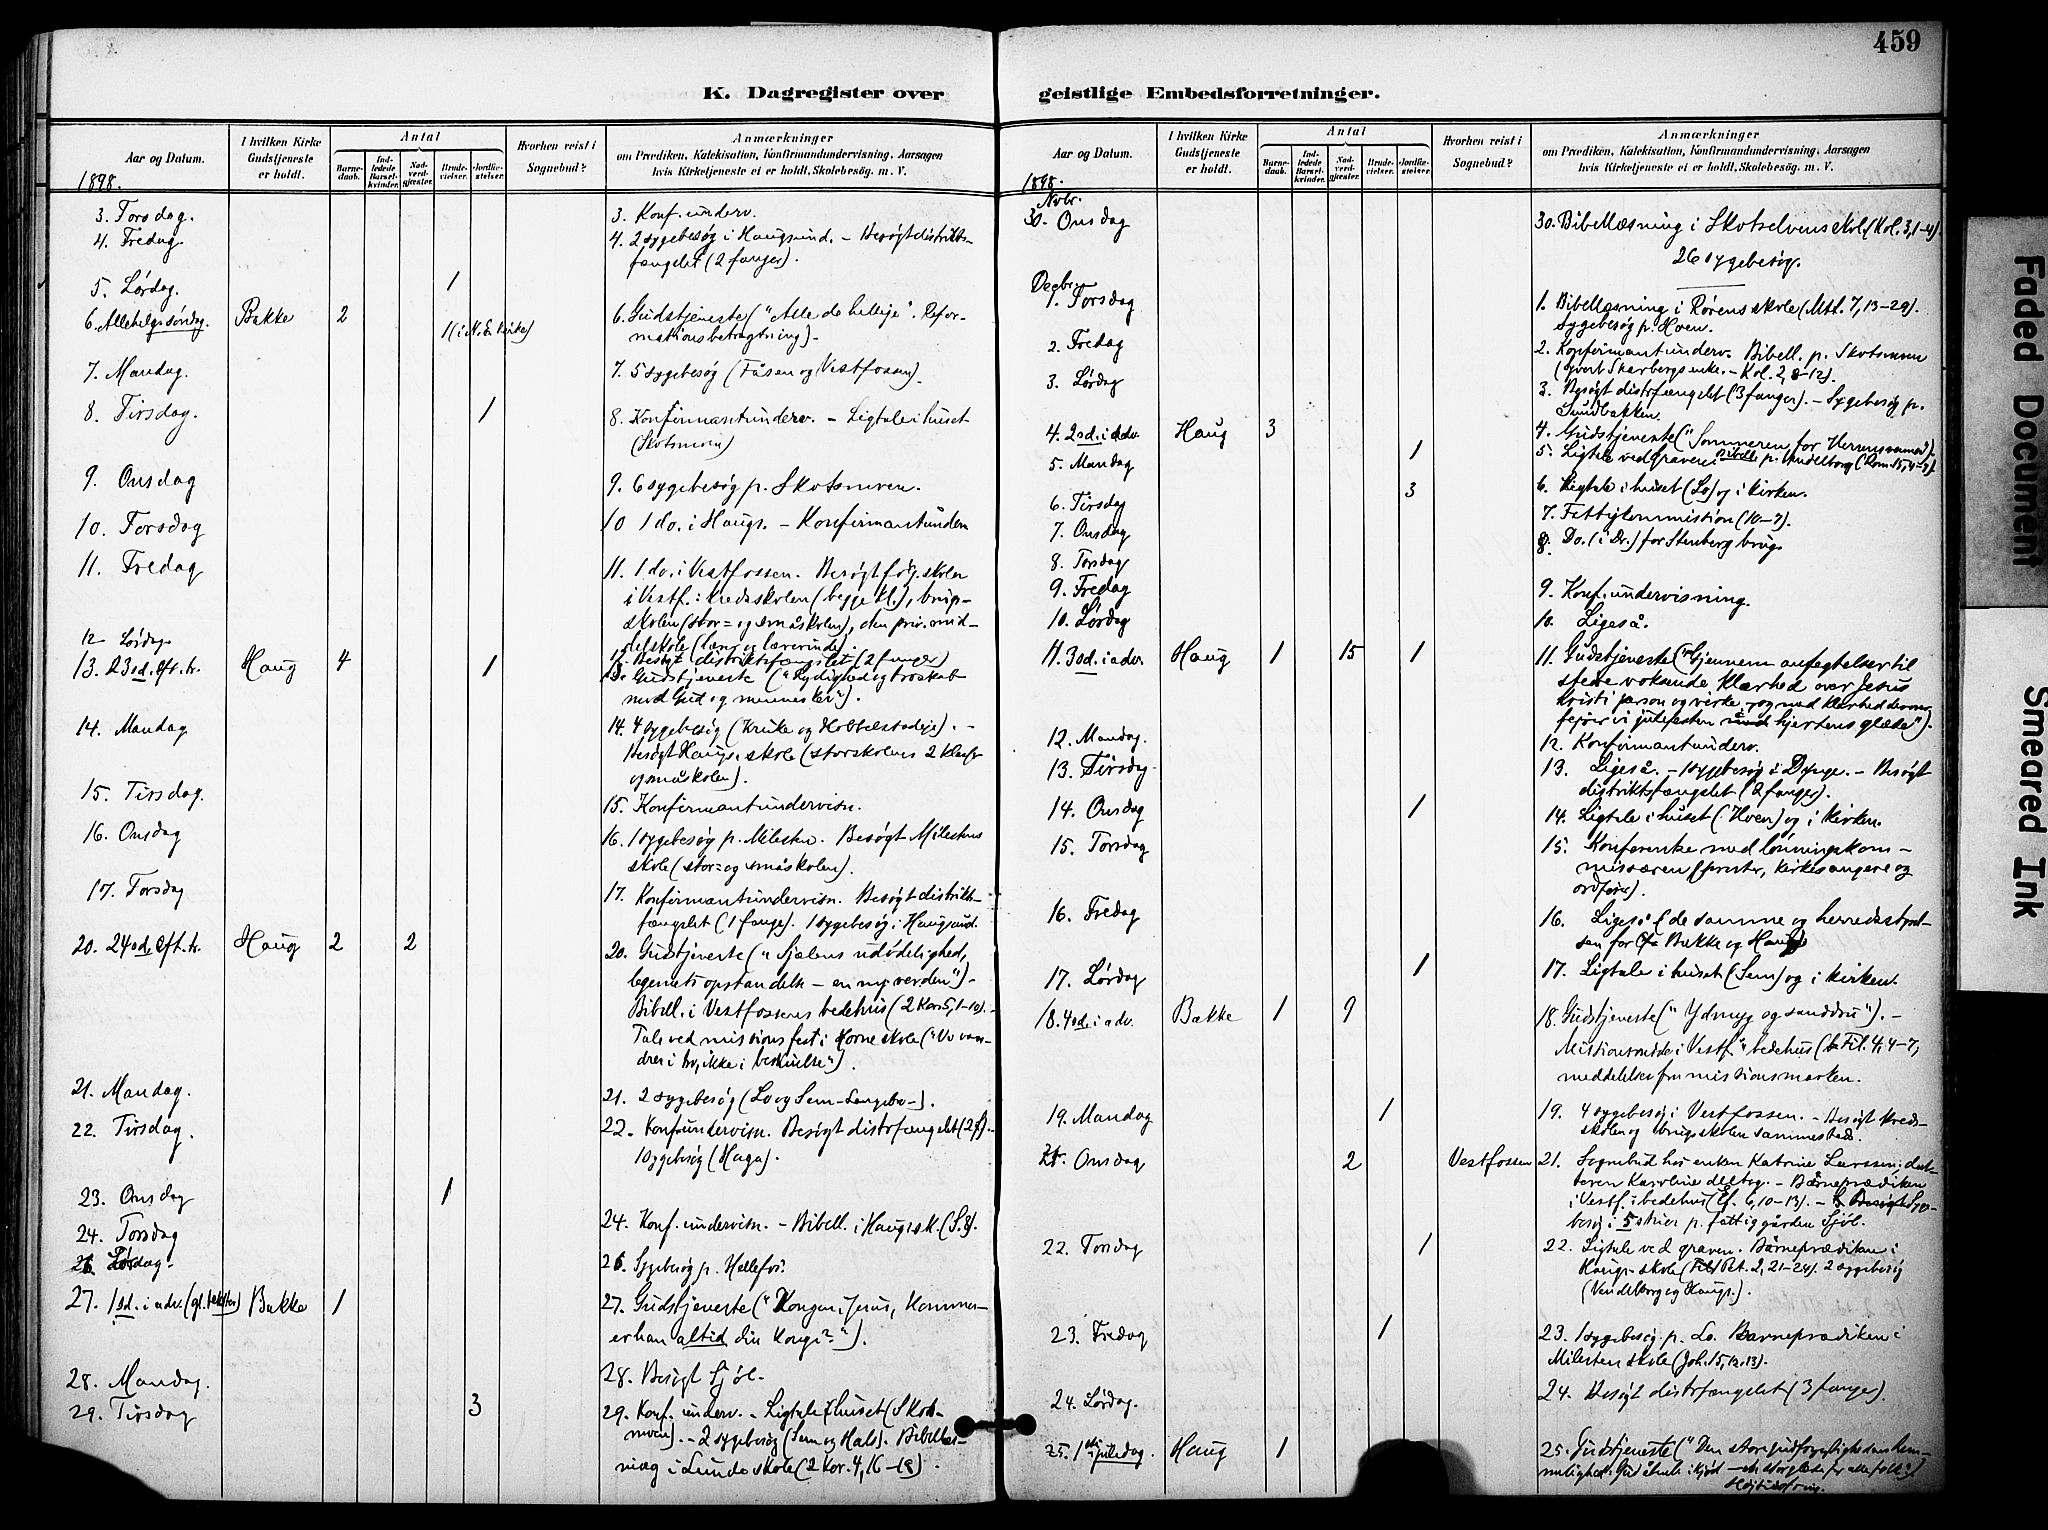 459
K. Dagregister over geistlige Embedsforretninger.
Aar og Datum.
I hvilken Kirke Gudstjeneste er holdt.
Antal
Barnedaab.
Indledede Barselkvinder.
Nadverdgjester.
Brudevielser.
Jordfæstelser.
Hvorhen reist i Sognebud?
Anmærkninger
om Prædiken, Katekisation, Konfirmandundervisning, Aarsagen
hvis Kirketjeneste ei er holdt, Skolebesøg. m. V.
1898.
3. Torsdag. 3. Konf. underv.
4. Fredag. 4. 2 sygebesøg i Haugsund. – Besøgt distrikts-
fængslet (2 fanger).
5. Lørdag. 1
6. Allehelgssøndag. Bakke 2 1 (i N. E. kirke) 6. Gudstjeneste ("Alle de hellige". Refor-
mationsbetragtning).
7. Mandag. 7. 5 sygebesøg (Fåsen og Vestfossen).
8. Tirsdag. 1 8. Konfirmantunderv. – Ligtale i huset
(Skotsmoen)
9. Onsdag 9. 6 sygebesøg p. Skotsmoen.
10. Torsdag 10 1 do. i Haugs. – Konfirmantunderv
11. Fredag 11. 1 do. i Vestfossen. Besøgt følg. skoler
i Vestf.: kredsskolen (begge kl.), brugs-
skolen (stor= og småskolen), den priv. mid-
delskole (lærer og lærerinde).
12 Lørdag 12. Besøgt distriktsfængslet (2 fanger)
13. 23 sd. eft. tr. Haug 4 1 13. Gudstjeneste ("Lydighed og troskab
mod Gud og mennesker").
14. Mandag 14. 4 sygebesøg (Kruke og Hobbelstadeje). –
Besøgt Haugs. skole (storskolens 2 klasser
og småskolen).
15. Tirsdag. 15. Konfirmantundervisn.
16. Onsdag 16. 1 sygebesøg p. Milesten. Besøgt Milestens
skole (stor= og småskolen).
17. Torsdag 17. Konfirmantundervisn. Besøgt distrikts-
fængslet (1 fange). 1 sygebesøg i Haugsund.
20. 24 sd. eft. tr. Haug 2 2 20. Gudstjeneste ("Sjælens udødelighed,
legemets opstandelse – en ny verden") –
Bibell. i Vestfossens bedehus (2 Kor. 5, 1–10). –
Tale ved missionsfest i Horne skole ("Vi van-
drer i tro, ikke i beskuelse").
21. Mandag. 21. 2 sygebesøg (Lo og Sem-Langebo-).
22. Tirsdag. 22. Konf.undervisn. Besøgt distr.fængslet (2 f). –
1 sygebesøg (Haga).
23. Onsdag 1
24. Torsdag 24. Konf. undervisn. – Bibell. i Haugs sk. (S. 8).
26. Lørdag. 26. Sygebesøg p. Hellefos.
27. 1 sd. i adv. (gl. tekster) Bakke 1 27. Gudstjeneste ("Kongen Jesus, kommer –
er han altid din konge?").
28. Mandag. 28. Besøgt Sjøl.
29. Tirsdag 3 29. Konf. underv. – Ligtale i huset (Skots-
moen). – 2 sygebesøg (Sem og Hals). Bibellæs-
ning i Lunde skole (2 Kor. 4, 16–18).
1898.
Novbr.
30. Onsdag 30. Bibellæsning i Skotselvens skole (Kol. 3, 1–4).
26 sygebesøg.
Decbr.
1. Torsdag 1. Bibellæsning i Rørens skole (Mtt. 7, 13–29).
Sygebesøg p. Hoen.
2. Fredag 2. Konfirmantunderv. Bibell. p. Skotsmoen
( Skarbergs enke. – Kol. 2, 8–12).
3. Lørdag 3. Besøgt distr.fængslet (3 fanger). – Sygebesøg p.
Sundbakken.
4. 2 sd. i adv. Haug 3 4. Gudstjeneste ("Sommeren for Herrens ").
5. Mandag 1 5. Ligtale ved graven. Bibell. p. Vendelborg (Rom 15, 4–9)
6. Tirsdag 3 6. Ligtale i huset (Lo) og i kirken.
7. Onsdag 7. Fattigkommission (10–7).
8. Torsdag 8. Do. (i Dr.) for Stenberg brug.
9. Fredag 9. Konf. undervisning.
10. Lørdag 10. Ligeså.
11. 3 sd. i adv. Haug 1 15 1 11. Gudstjeneste ("Gjennem anfegtelser til
stedse voksende klarhed over Jesus
Kristi person og virke, og med klarhed derover
fejrer vi julefesten med hjertens glæde").
12. Mandag. 12. Konfirmantunderv.
13. Tirsdag. 13. Ligeså. – 1 sygebesøg i . – Besøgt
distriktsfængslet (2 fanger).
14. Onsdag 1 14. Ligtale i huset (Hoen) og i kirken.
15. Torsdag 15. Konference med lønningskom-
missæren (prester, kirkesangere og
ordfører).
16. Fredag 16. Ligeså (de samme og herredsstyrel-
sen for Bakke og Haug)
17. Lørdag 1 17. Ligtale i huset (Sem) og i kirken.
18. 4 sd. i adv. Bakke 1 9 18. Gudstjeneste ("Ydmyg og sanddru"). –
Missionsmøde i Vestf. bedehus (Fil. 4, 4–7,
meddelelser fra missionsmarken.
19. Mandag 1 19. 4 sygebesøg i Vestfossen. – Besøgt kreds-
skolen og brugsskolen sammesteds.
21. Onsdag 2 Vestfossen 21. Sognebud hos enken Katrine Larssen; dat-
teren Karoline deltog. – Barneprædiken
i Vestf. i bedehus (Ef. 6, 10–13). – Syge-
besøg i 5 p. fattiggården Sjøl.
22. Torsdag 1 22. Ligtale ved graven. Barneprædiken i
Haugs skole (Pet. 2, 21–24). 2 sygebesøg
(Vendelborg og Haugs.).
23. Fredag 1 23. 1 sygebesøg p. Lo. Barneprædiken i
Milesten skole (Joh. 15, 12.13).
24. Lørdag. 24. Besøgt distr.fængslet (3 fanger).
25. 1ste juledag. Haug 1 25. Gudstjeneste ("Den store gudfrygtigheds hem-
melighed: Gud åbenb. i kjød – en stor glæde for alle folk")
Højtidsofring.
Faded Document
Smeared Ink